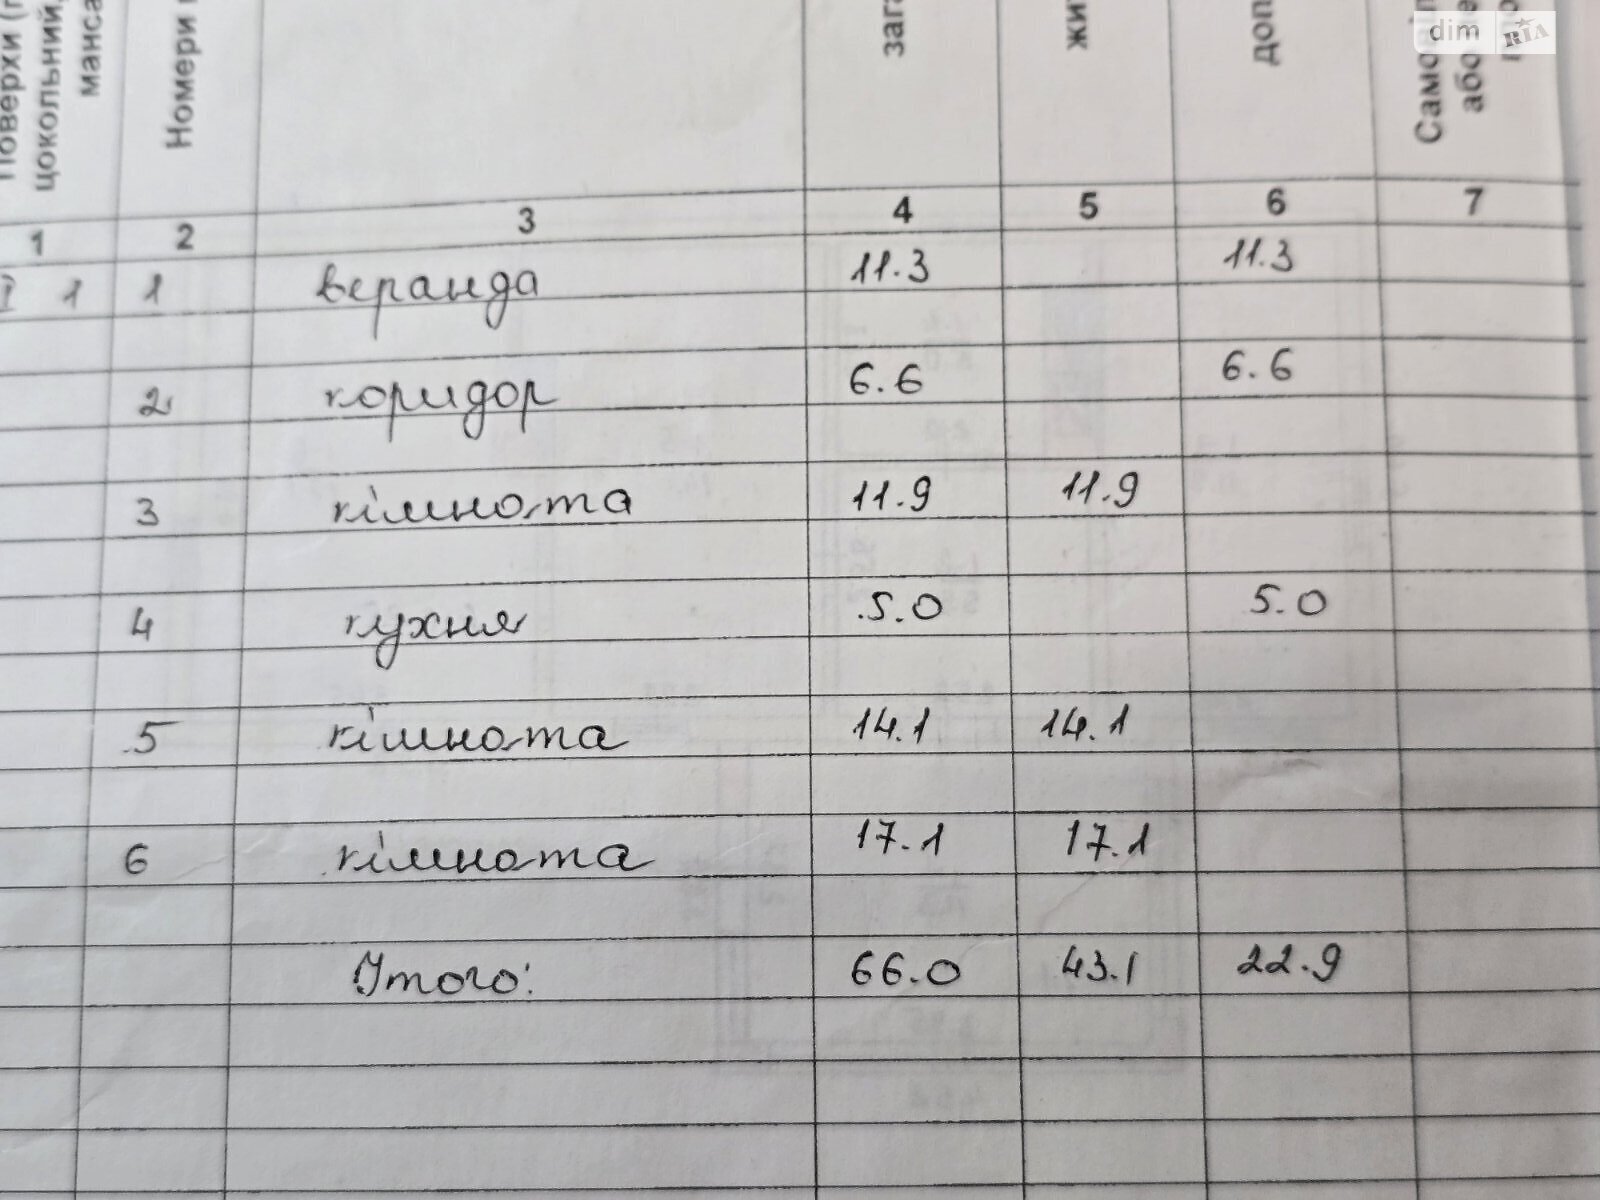 dim RIA
Поверхи
цокольний,
манса
Номери
заг
жит
доп
або
1 2 3 4 5 6 7
1 1 веранда 11.3 11.3
2 коридор 6.6 6.6
3 кімната 11.9 11.9
4 кухня 5.0 5.0
5 кімната 14.1 14.1
6 кімната 17.1 17.1
Итого: 66.0 43.1 22.9